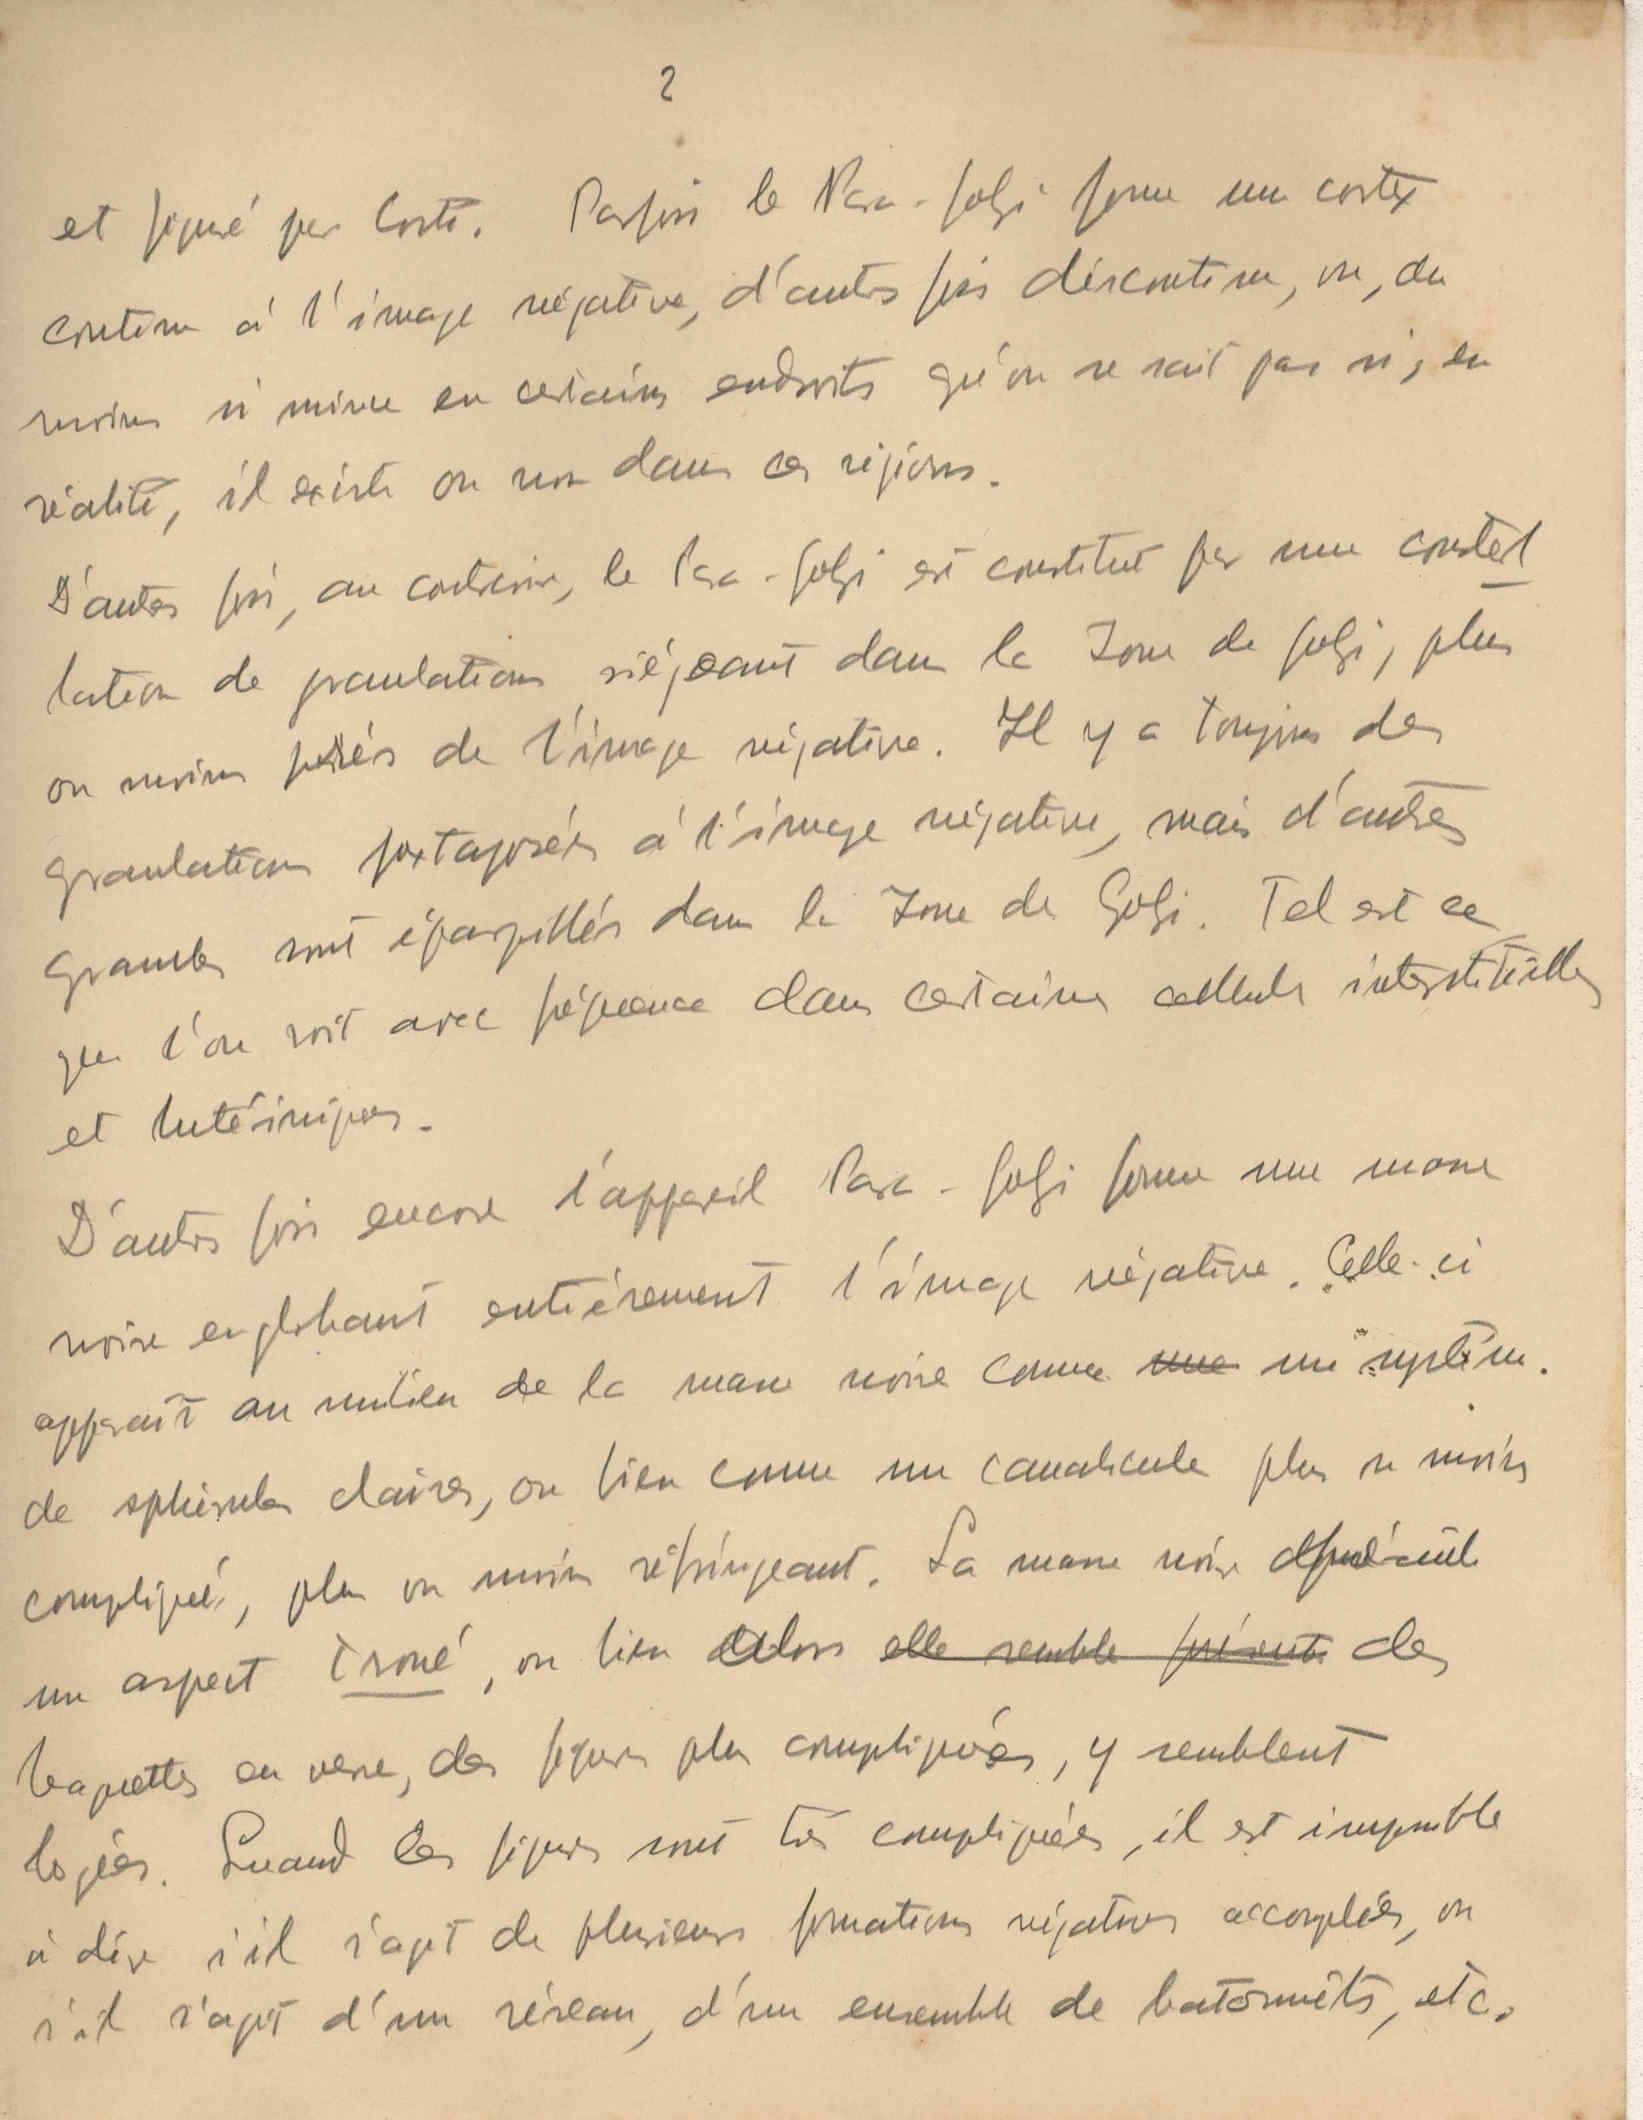 2
et figuré par Costé. Parfois le Para-Golgi forme un cortex
continu à l'image négative, d'autres fois discontinu, ou, du
moins si mince en certains endroits qu'on ne sait pas si, en
réalité, il existe ou non dans ces régions.
D'autres fois, au contraire, le Para-Golgi est constitué par une constel
lation de granulations siégeant dans la Zone de Golgi, plus
ou moins près de l'image négative. Il y a toujours des
granulations juxtaposées à l'image négative, mais d'autres
granules sont éparpillés dans la Zone de Golgi. Tel est ce
que l'on voit avec fréquence dans certaines cellules interstitielles
et lutéiniques.
D'autres fois encore l'appareil Para-Golgi forme une masse
noire englobant entièrement l'image négative. Celle-ci
apparaît au milieu de la masse noire comme une un système.
de sphérules claires, ou bien comme un canalicule plus ou moins
compliqué, plus ou moins réfringeant. La masse noire
un aspect troué, ou bien alors elle semble présente des
baguettes en verre, des figures plus compliquées, y semblent
logées. Quand les figures sont très compliquées, il est impossible
à dire s'il s'agit de plusieurs formations négatives accouplées, ou
s'il s'agit d'un réseau, d'un ensemble de batonnêts, etc.